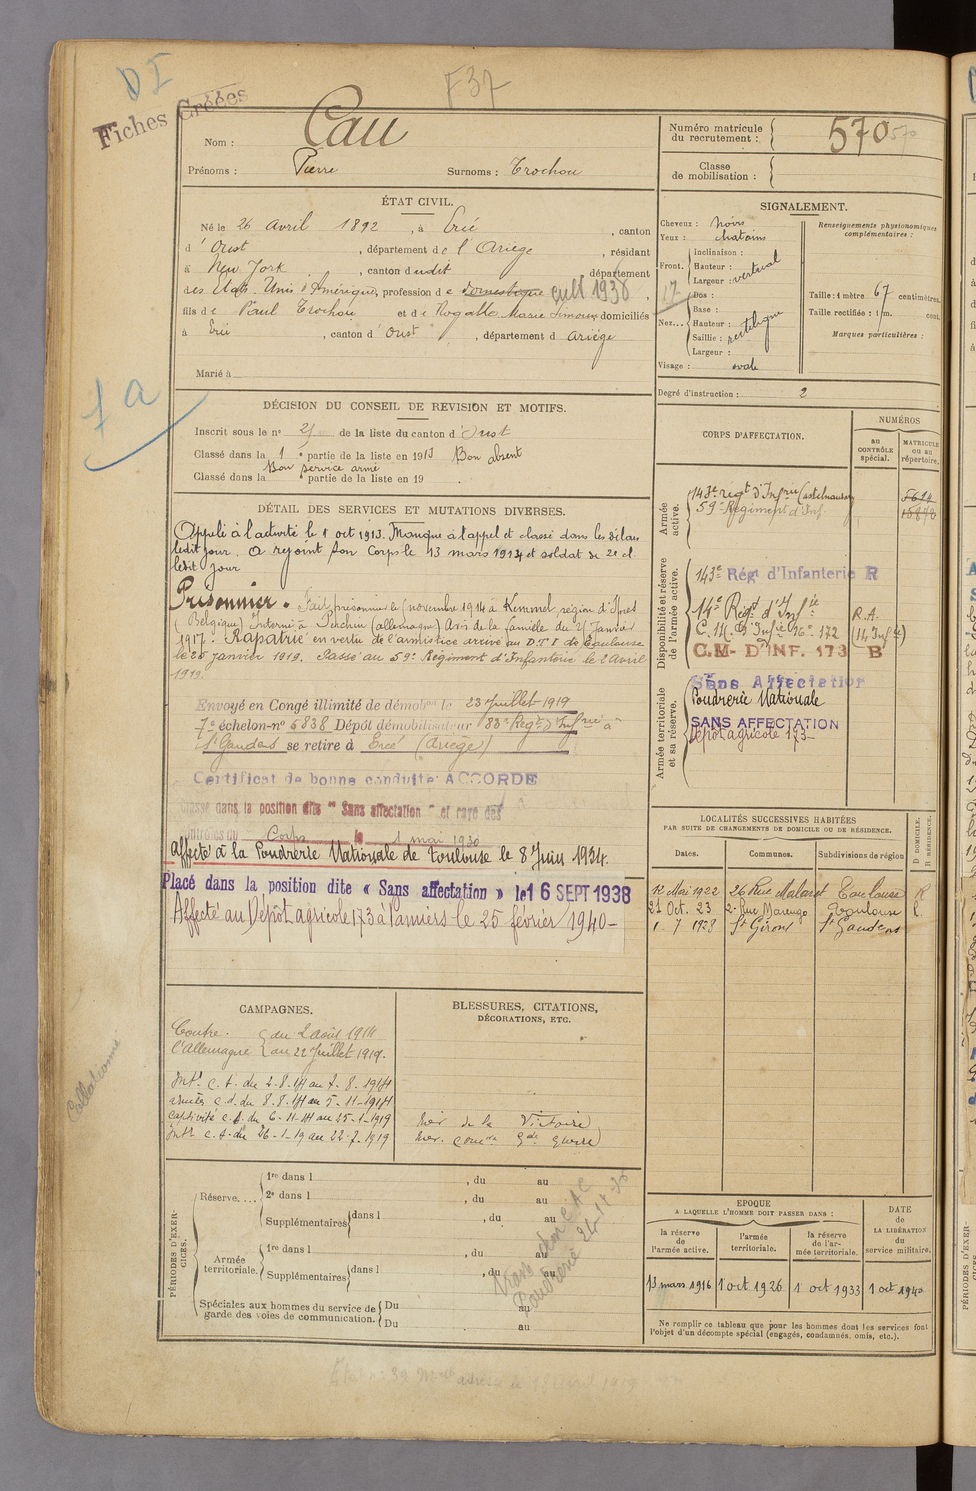 DI
F37
Fiches Créées
Nom : Cau
Prénoms : Pierre Surnoms : Trochou
Numéro matricule du recrutement : 570 570
Classe de mobilisation :
ÉTAT CIVIL.
Né le 26 Avril 1892, à Ercé, canton
d'Oust, département de l'Ariège, résidant
à New York, canton dudit, département
des Etats-Unis d'Amérique, profession de domestique cult 1938,
fils de Paul Trochou et de Rogalle Marie domiciliés
à Ercé, canton d'Oust, département d Ariège
Marié à
SIGNALEMENT.
Cheveux : noirs
Yeux : chatains
Front. Inclinaison :
Hauteur :
Largeur : vertical
Nez... Dos :
Base :
Hauteur :
Saillie : rectiligne
Largeur :
Visage : ovale
Renseignements physionomiques complémentaires :
Taille : 1 mètre 67 centimètres.
Taille rectifiée : 1 m. cent.
Marques particulières :
Degré d'instruction : 2
1a
DÉCISION DU CONSEIL DE REVISION ET MOTIFS.
Inscrit sous le n° 21 de la liste du canton d'Oust
Classé dans la 1e partie de la liste en 1913 Bon absent
Bon service armé
Classé dans la e partie de la liste en 19 .
DÉTAIL DES SERVICES ET MUTATIONS DIVERSES.
Appelé à l'activité le 1 oct 1913. Manque à l'appel et classé dans les
ledit jour. a rejoint son Corps le 13 mars 1914 et soldat de 2e cl.
ledit jour
Prisonnier. Fait prisonnier le novembre 1914 à Kemmel région d'Ypres
(Belgique) Interné à (allemagne) Avis de la famille du 21 Janvier
1917. Rapatrié en vertu de l'armistice arrivé au D.T.I de Toulouse
le 25 janvier 1919. Passé au 59e Régiment d'Infanterie le 2 avril
1919.
Envoyé en Congé illimité de démobon le 23 Juillet 1919
7e échelon-n° 5838 Dépôt démobilisateur 83e Régt d'Infrie à
St Gaudens se retire à Ercé (Ariège)
Certificat de bonne conduite ACCORDÉ
Classé dans la position dite "Sans affectation" et rayé des
contrôles du Corps le 1 mai 1930
Affecté à la Poudrerie Nationale de Toulouse le 8 Juin 1934.
Placé dans la position dite « Sans affectation » le 16 SEPT 1938
Affecté au Dépôt agricole 173 à Pamiers le 25 février 1940-
CORPS D'AFFECTATION.
NUMÉROS
au CONTRÔLE spécial.
MATRICULE ou au répertoire.
Armée active.
143e régt d'Infrie Castelnaudary 5624
59e Régiment d'Inf 15878
Disponibilité et réserve de l'armée active.
143e Régt d'Infanterie R
14e Régt d'Infie R.A.
C.M. d'Infie 16e 172 (14 Inf)
C.M- D'INF. 173 B
Armée territoriale et sa réserve.
Sans Affectation
Poudrerie Nationale
SANS AFFECTATION
Dépôt agricole 173-
LOCALITÉS SUCCESSIVES HABITÉES
PAR SUITE DE CHANGEMENTS DE DOMICILE OU DE RÉSIDENCE.
Dates. Communes. Subdivisions de région
D DOMICILE. R RÉSIDENCE.
12 Mai 1922 26 Rue Matabiau Toulouse R
21 Oct. 23 2 Rue Marengo Toulouse R
1 7 1928 St Girons St Gaudens
CAMPAGNES.
Contre l'Allemagne du 2 août 1914
au 22 Juillet 1919.
Intr C.S. du 2-8-14 au 7-8-1914
armées c.d. du 8-8-14 au 5-11-1914
captivité c.s. du 6-11-14 au 25-1-1919
Intr c.s. du 26-1-19 au 22-7-1919
Collationné
BLESSURES, CITATIONS,
DÉCORATIONS, ETC.
Mér de la Victoire
Mér. comve Gde guerre
PÉRIODES D'EXERCICES.
Réserve....
1re dans l , du au
2e dans l , du au
Supplémentaires dans l , du au
Armée territoriale.
1re dans l , du au
Supplémentaires dans l , du au
Spéciales aux hommes du service de garde des voies de communication.
Du au
Du au
EPOQUE
A LAQUELLE L'HOMME DOIT PASSER DANS :
la réserve de l'armée active.
l'armée territoriale.
la réserve de l'armée territoriale.
DATE de LA LIBÉRATION du service militaire.
13 mars 1916 1 oct 1926 1 oct 1933 1 oct 1940
Ne remplir ce tableau que pour les hommes dont les services font
l'objet d'un décompte spécial (engagés, condamnés, omis, etc.).